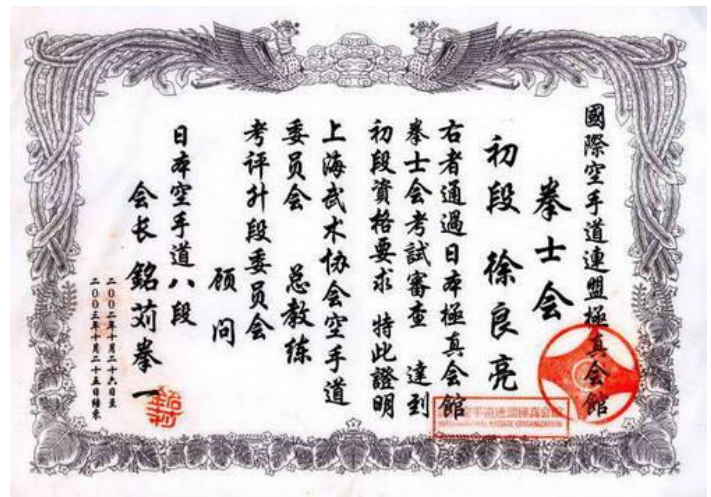 國際空手道連盟極真会館
拳士会
初段 徐良亮
右者通過日本極真会館
拳士会考試審查 達到
初段資格要求 特此證明
上海武术协会空手道
委员会 总教练
考评升段委员会
顾问
日本空手道八段
会长 銘苅拳一
二00二年十月二十六日至
二00三年十月二十五日结束
INTERNATIONAL KARATE ORGANIZATION